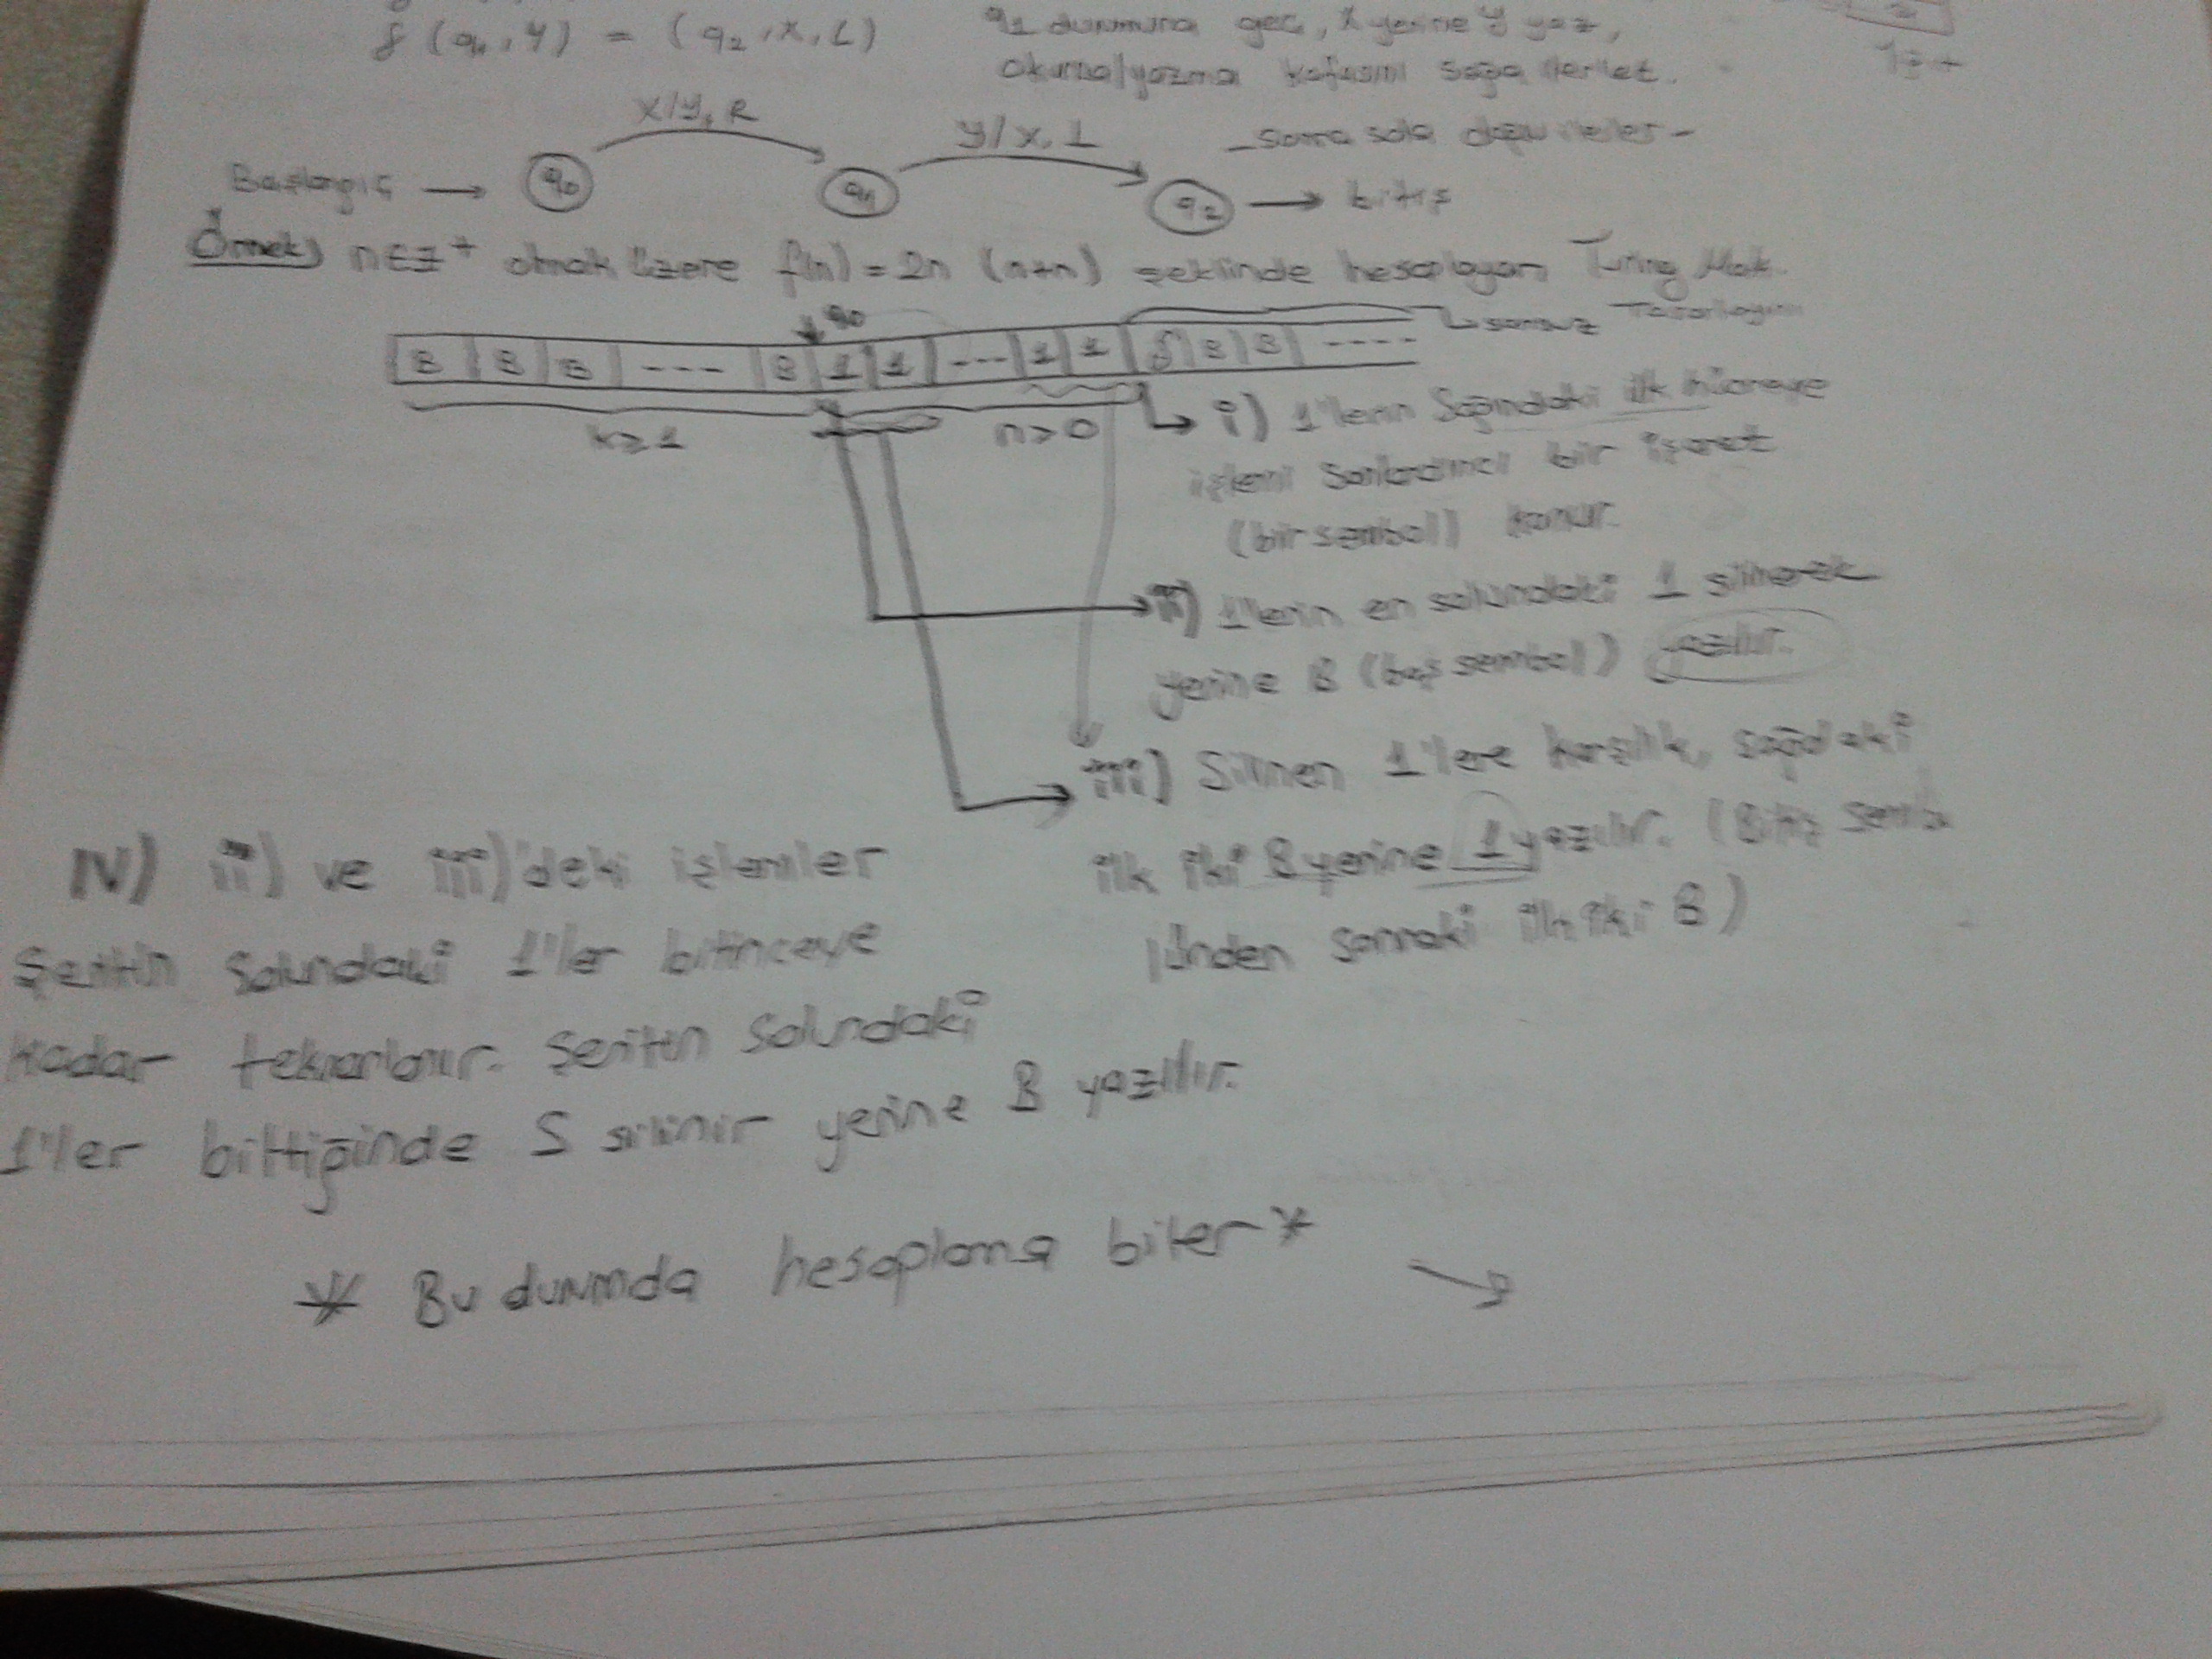 δ(q1,y) = (q2,x,L)
q1 durumuna geç, x yerine y yaz,
okuma/yazma kafasını sağa ilerlet.
x/y, R
y/x, L
_sonra sola doğru ilerler-
Başlangıç → q0
q1
q2 → bitiş
Örnek) n∈Z+ olmak üzere f(n)=2n (n+n) şeklinde hesaplayan Turing Mak.
Tasarlayın
↓q0
sonsuz
B B B ---- B 1 1 --- 1 1 S B B ----
k≥1
n>0
i) 1'lerin Sağındaki ilk hücreye
işlemi Sonlandırıcı bir işaret
(bir sembol) konur.
ii) 1'lerin en solundaki 1 silinerek
yerine B (boş sembol) yazılır.
iii) Silinen 1'lere karşılık, sağdaki
ilk iki B yerine 1 yazılır. (Bitiş sembo
lünden sonraki ilk iki B)
IV) ii) ve iii)'deki işlemler
Şeritin Solundaki 1'ler bitinceye
kadar tekrarlanır. Şeritin Solundaki
1'ler bittiğinde S silinir yerine B yazılır.
* Bu durumda hesaplama biter *
→